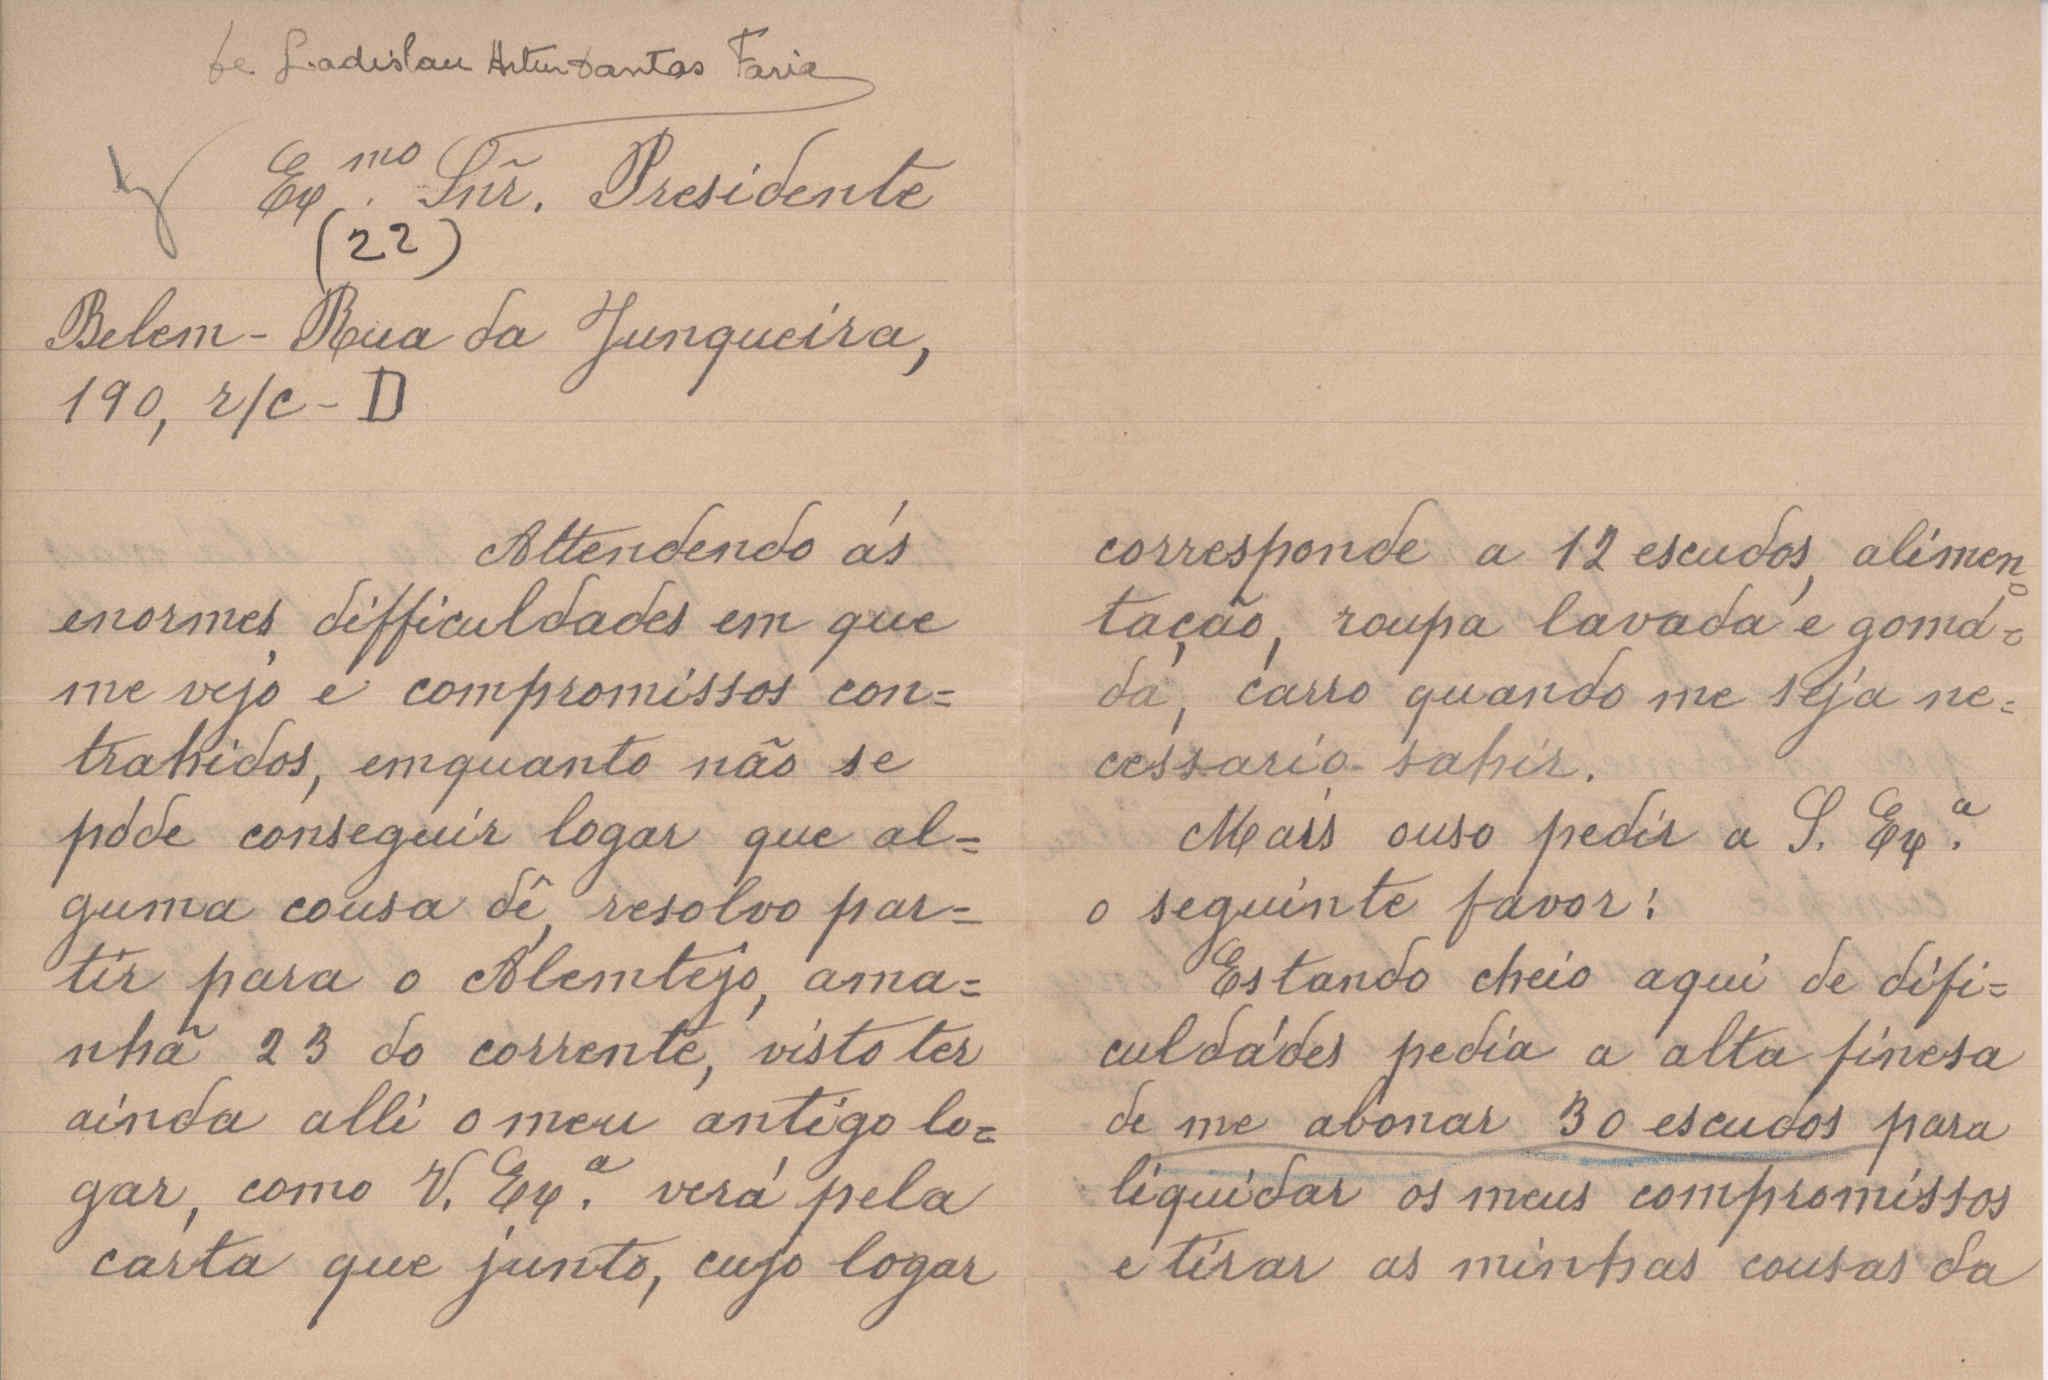 de Ladislau Artur Dantas Faria
Exmo. Snr̃. Presidente
(22)
Belem - Rua da Junqueira,
190, r/c - D
Attendendo ás
enormes difficuldades em que
me vejo e compromissos con=
trahidos, emquanto não se
póde conseguir logar que al=
guma cousa dê, resolvo par=
tir para o Alemtejo, ama=
nhã 23 do corrente, visto ter
ainda alli o meu antigo lo=
gar, como V. Exª. verá pela
carta que junto, cujo logar
corresponde a 12 escudos, alimen=
tação, roupa lavada e goma=
da, carro quando me seja ne=
cessario sahir.
Mais ouso pedir a S. Exª.
o seguinte favor:
Estando cheio aqui de difi=
culdades pedia a alta finesa
de me abonar 30 escudos para
liquidar os meus compromissos
e tirar as minhas cousas da